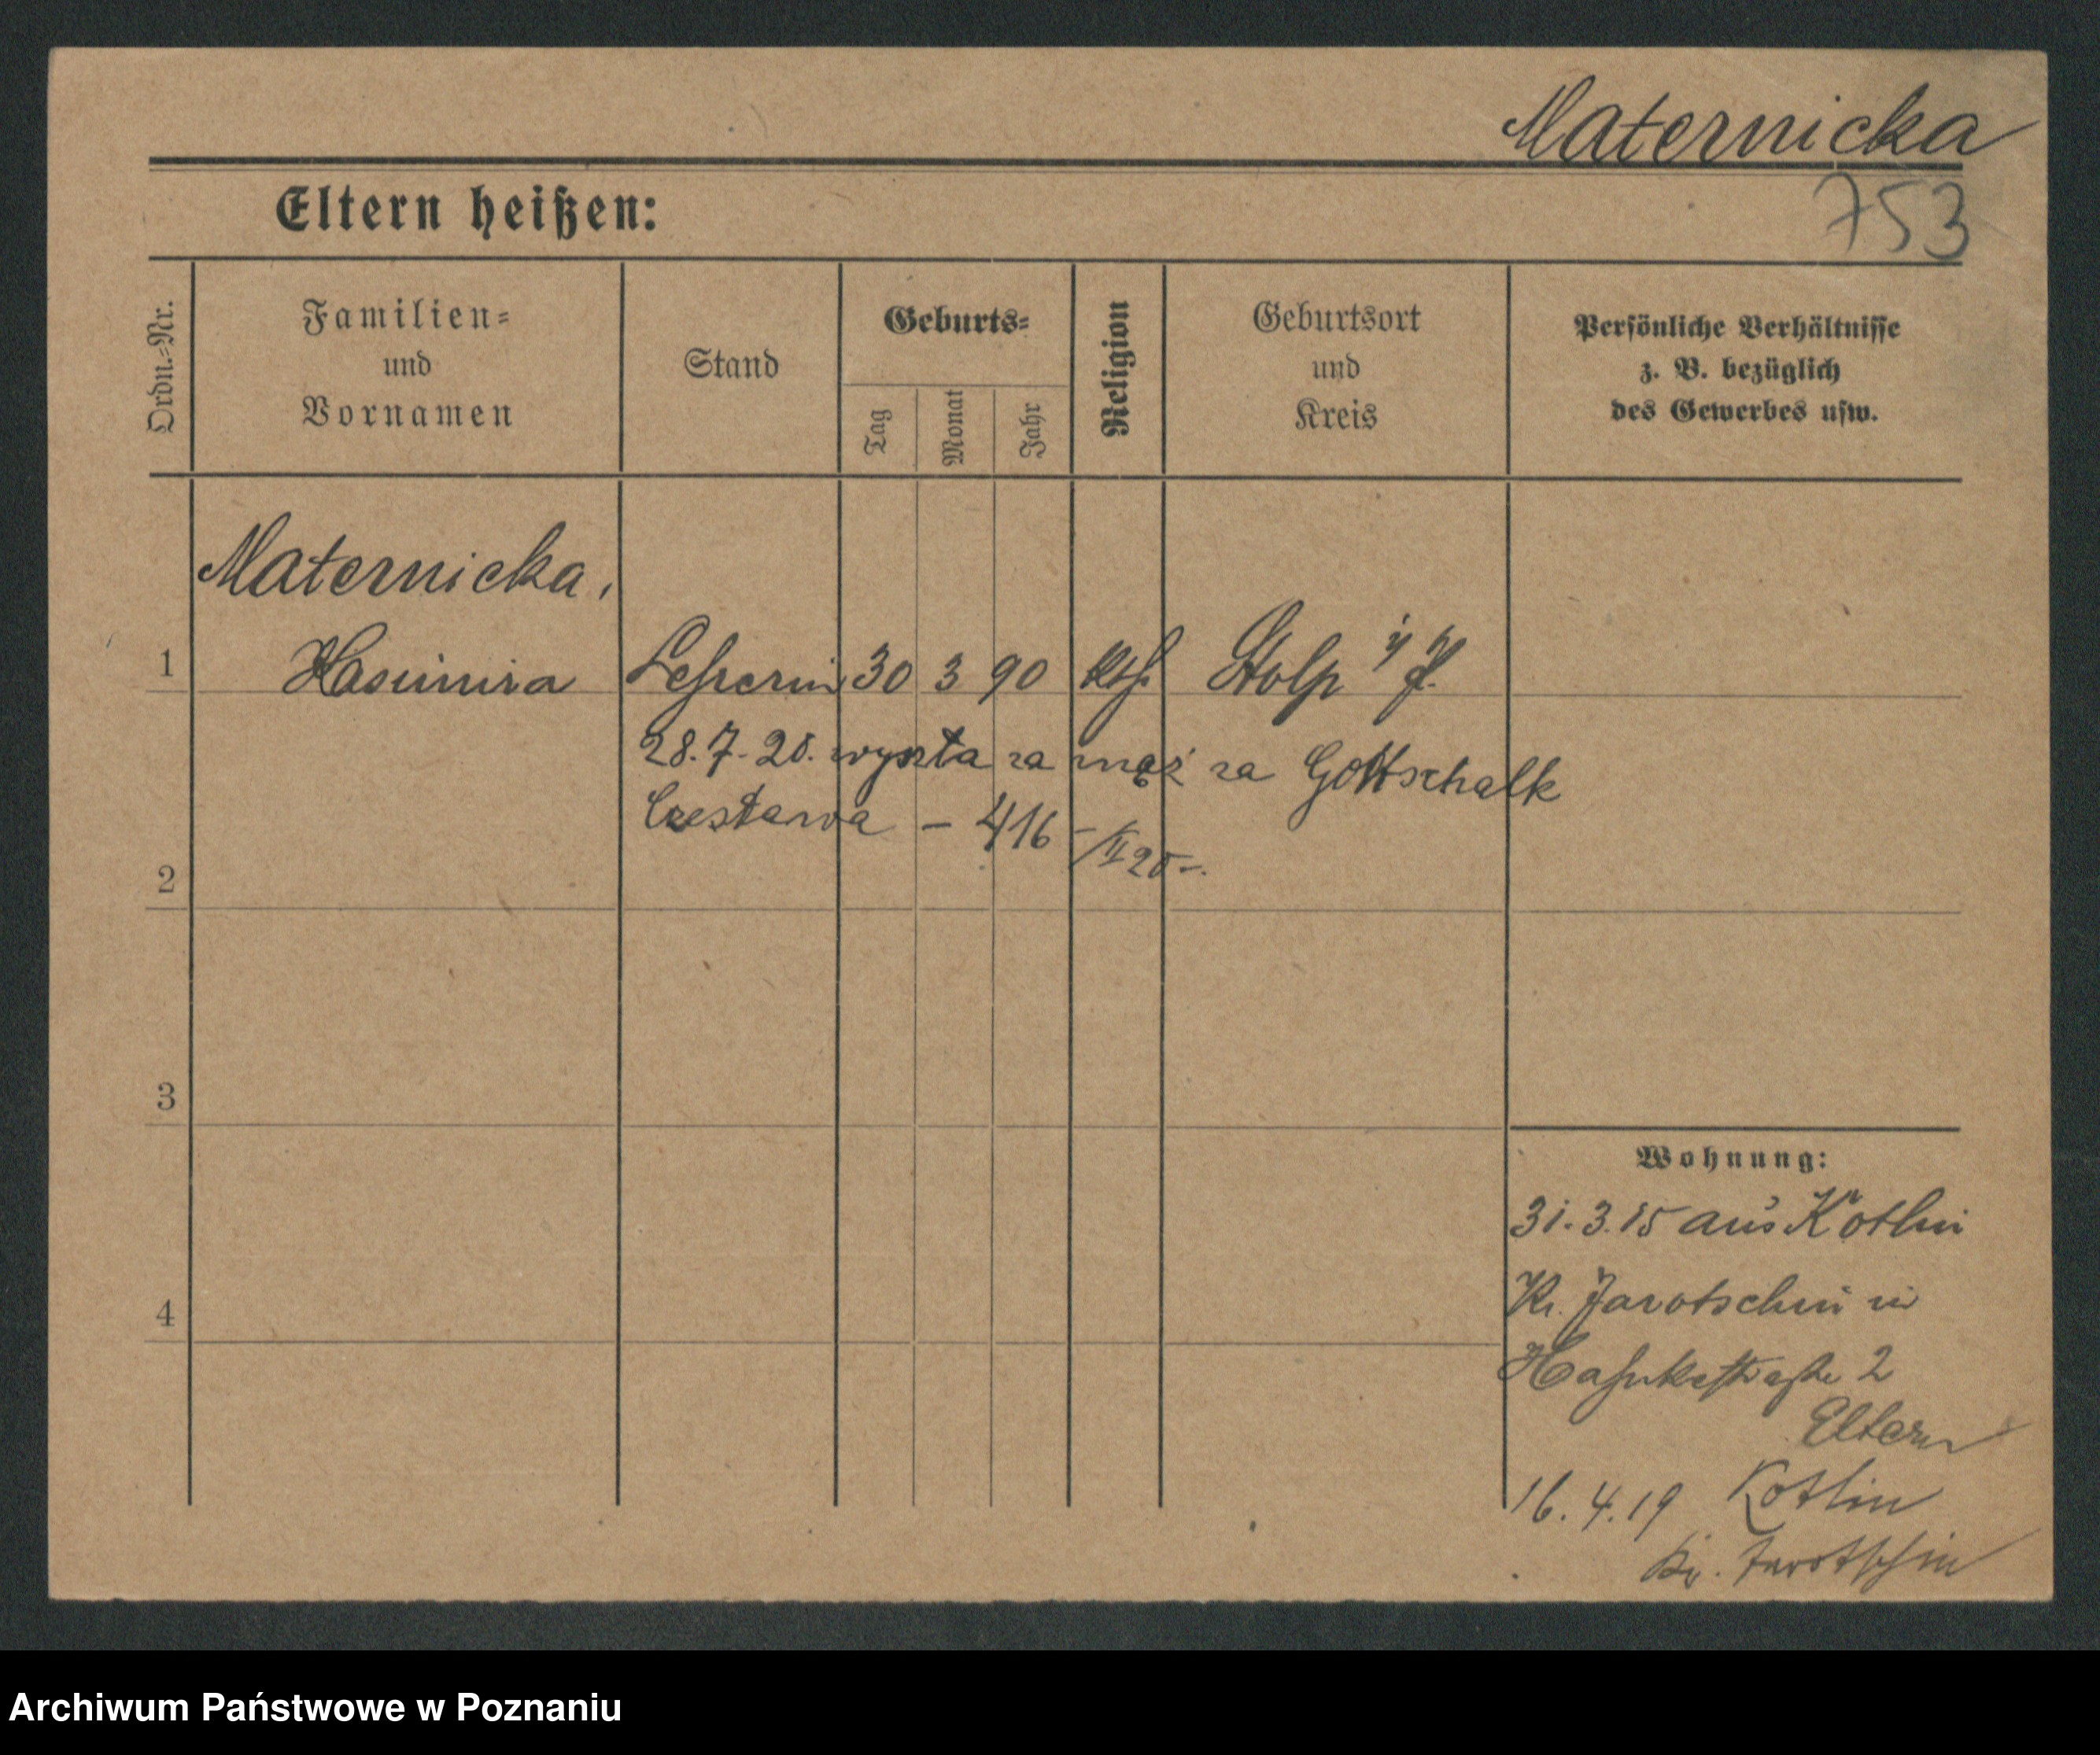 Maternicka
753
Eltern heißen:
Ordn.-Nr.
Familien-
und
Vornamen
Stand
Geburts-
Tag
Monat
Jahr
Religion
Geburtsort
und
Kreis
Persönliche Verhältnisse
z. B. bezüglich
des Gewerbes usw.
Maternicka,
1 Kasimira Lehrerin 30 3 90 kth. Stolp i/P.
28.7.20. wyszła za mąż za Gottschalk
Czesława - 416 -/II 20-.
2
3
4
Wohnung:
31.3.15 aus Kotlin
Kr. Jarotschin in
2
Eltern
16.4.19 Kotlin
Kr. Jarotschin
Archiwum Państwowe w Poznaniu